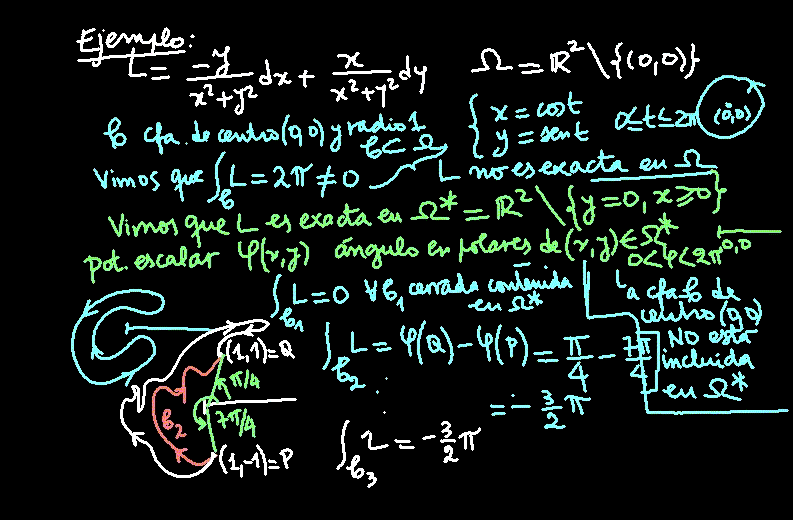 Ejemplo:
L = -y/(x²+y²) dx + x/(x²+y²) dy   Ω = ℝ² \ {(0,0)}
𝒞 cfa. de centro (0,0) y radio 1   { x = cos t   0 ≤ t ≤ 2π   (0,0)
𝒞 ⊂ Ω   y = sen t
Vimos que ∫_𝒞 L = 2π ≠ 0   L no es exacta en Ω
Vimos que L es exacta en Ω* = ℝ² \ {y=0, x≥0}
pot. escalar φ(x,y) ángulo en polares de (x,y) ∈ Ω*   0,0
0<φ<2π
∫_𝒞₁ L = 0 ∀ 𝒞₁ cerrada contenida en Ω*
La cfa 𝒞 de centro (0,0) NO está incluida en Ω*
(1,1)=Q   ∫_𝒞₂ L = φ(Q) - φ(P) = π/4 - 7π/4
π/4
= - 3/2 π
𝒞₂   7π/4
(1,-1)=P   ∫_𝒞₃ L = -3/2 π